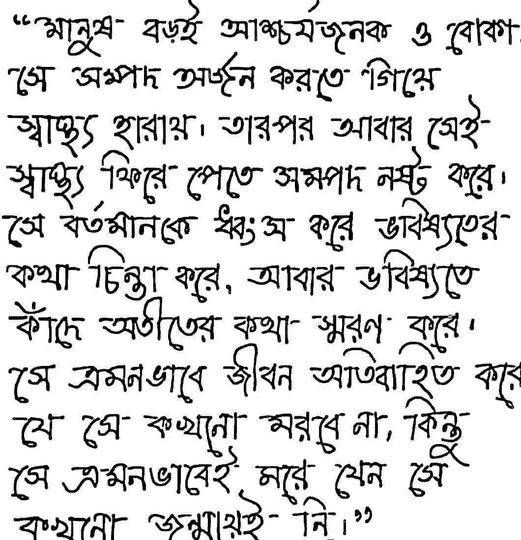 “মানুষ বড়ই আশ্চর্যজনক ও বোকা
সে সম্পদ অর্জন করতে গিয়ে
স্বাস্থ্য হারায়। তারপর আবার সেই
স্বাস্থ্য ফিরে পেতে সম্পদ নষ্ট করে।
সে বর্তমানকে ধ্বংস করে ভবিষ্যতের
কথা চিন্তা করে, আবার ভবিষ্যতে
কাঁদে অতীতের কথা স্মরণ করে।
সে এমনভাবে জীবন অতিবাহিত করে
যে সে কখনো মরবে না, কিন্তু
সে এমনভাবেই মরে যেন সে
কখনো জন্মায়ই নি।”